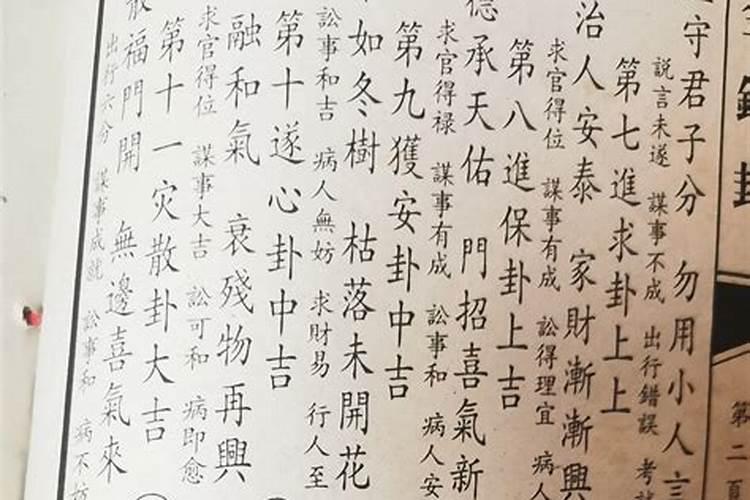 守君子分　勿用小人言
説言未遂　謀事不成　出行錯誤　考
第七進求卦上上
治人安泰　家財漸漸興
求官得位　謀事有成　訟得理宜　病人
第八進保卦上吉
德承天佑　門招喜氣新
求官得禄　謀事有成　訟事和　病人安
第九獲安卦中吉
如冬樹　枯落未開花
訟事和吉　病人無妨　求財易　行人至
第十遂心卦中吉
融和氣　衰殘物再興
求官得位　謀事大吉　訟可和　病即愈
第十一灾散卦大吉
福門開　無邊喜氣來
出行六分　謀事成就　訟事和　病不妨
第二百